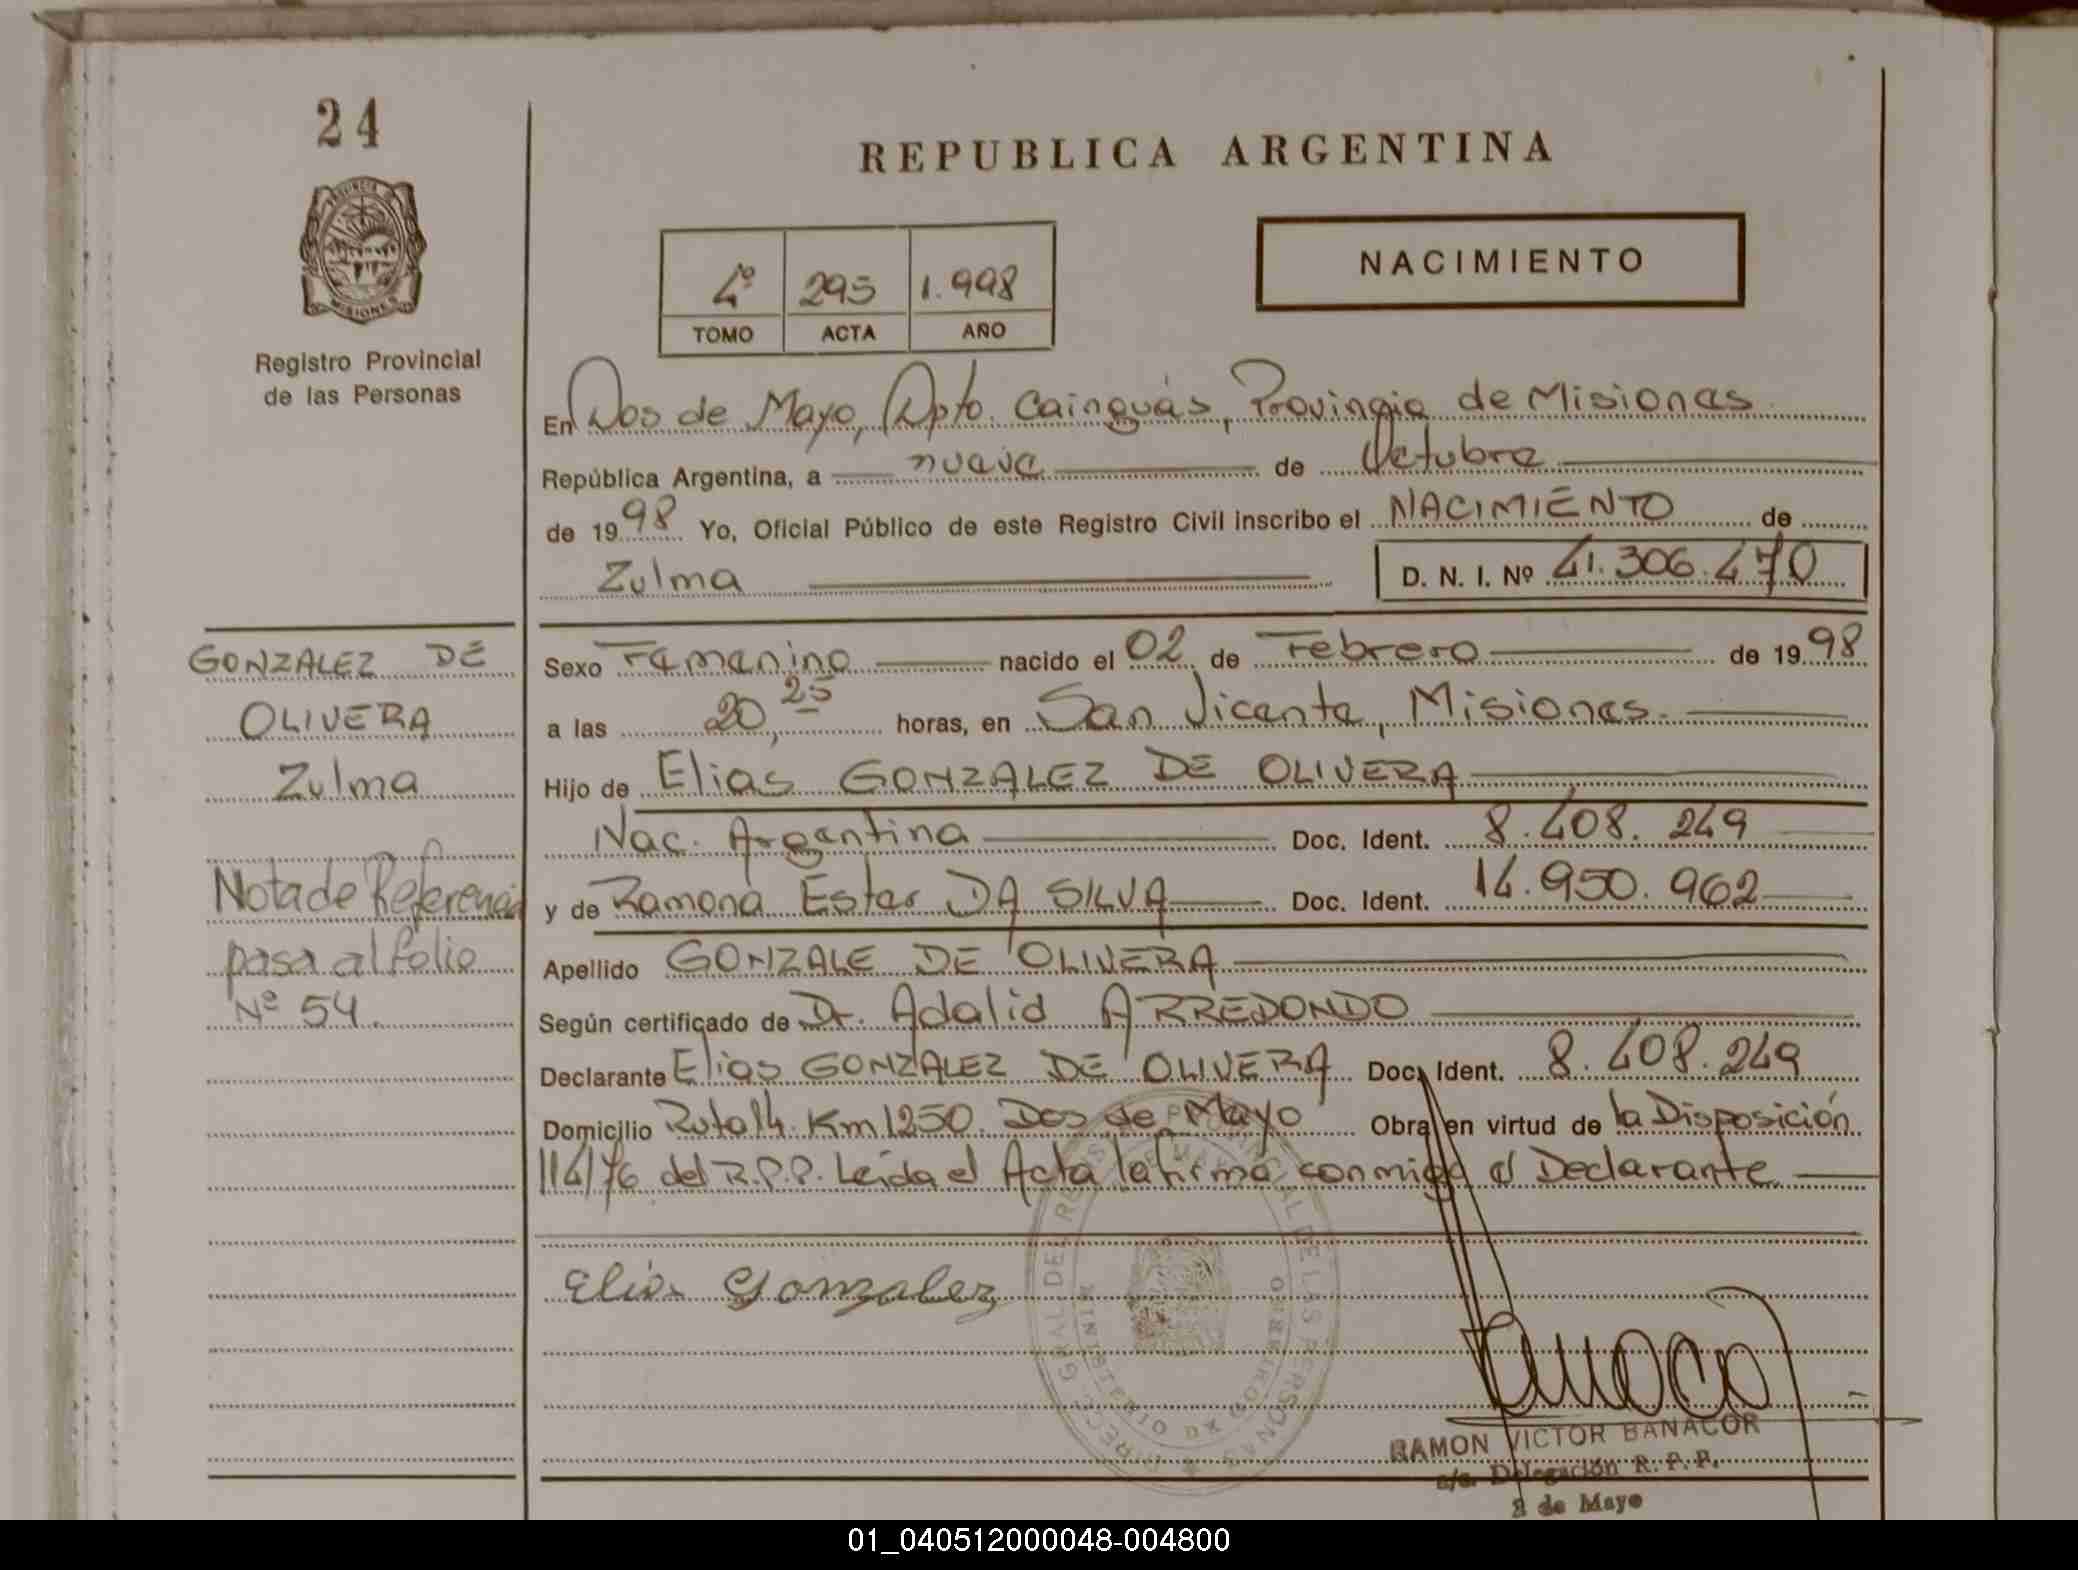 24
REPUBLICA ARGENTINA
NACIMIENTO
4º 295 1.998
TOMO ACTA AÑO
MISIONES
Registro Provincial
de las Personas
En Dos de Mayo, Dpto. Cainguás, Provincia de Misiones
República Argentina, a nueve de Octubre
de 1998 Yo, Oficial Público de este Registro Civil inscribo el NACIMIENTO de
Zulma D. N. I. Nº 41.306.470
GONZALEZ DE
OLIVERA
Zulma
Nota de Referencia
pasa al folio
Nº 54.
Sexo Femenino nacido el 02 de Febrero de 1998
a las 20,25 horas, en San Vicente, Misiones.
Hijo de Elias GONZALEZ DE OLIVERA
Nac. Argentina Doc. Ident. 8.408.249
y de Ramona Ester DA SILVA Doc. Ident. 14.950.962
Apellido GONZALE DE OLIVERA
Según certificado de Dr. Adalid ARREDONDO
Declarante Elias GONZALEZ DE OLIVERA Doc. Ident. 8.408.249
Domicilio Ruta 14 Km 1250. Dos de Mayo Obra en virtud de la Disposición
114/76 del R.P.P. Leida el Acta la firma conmigo el Declarante
Elias Gonzalez
RAMON VICTOR BANACOR
a/c. Delegación R. P. P.
2 de Mayo
01_040512000048-004800